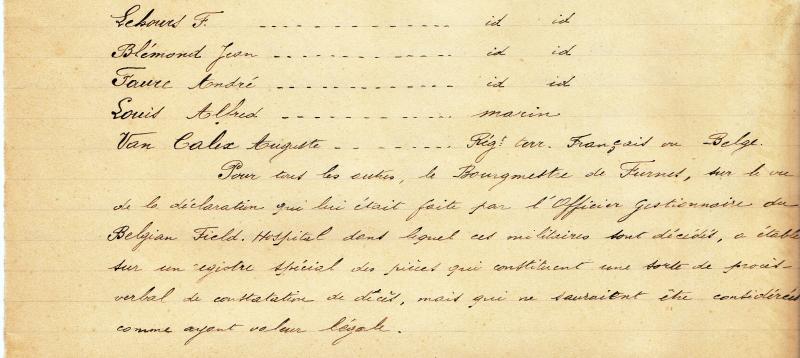 Lehours F. - - - - - - - - - - - - - id id
Blémond Jean - - - - - - - - - - - id id
Faure André - - - - - - - - - - - id id
Louis Alfred - - - - - - - - - - - marin
Van Calex Auguste - - - - - - - - Régt terr. Français ou Belge.
Pour tous les autres, le Bourgmestre de Furnes, sur le vu
de la déclaration qui lui était faite par l'Officier gestionnaire du
Belgian Field. Hospital dans lequel ces militaires sont décédés, a établi
sur un registre spécial des pièces qui constituent une sorte de procès-
verbal de constatation de décès, mais qui ne sauraient être considérées
comme ayant valeur légale.